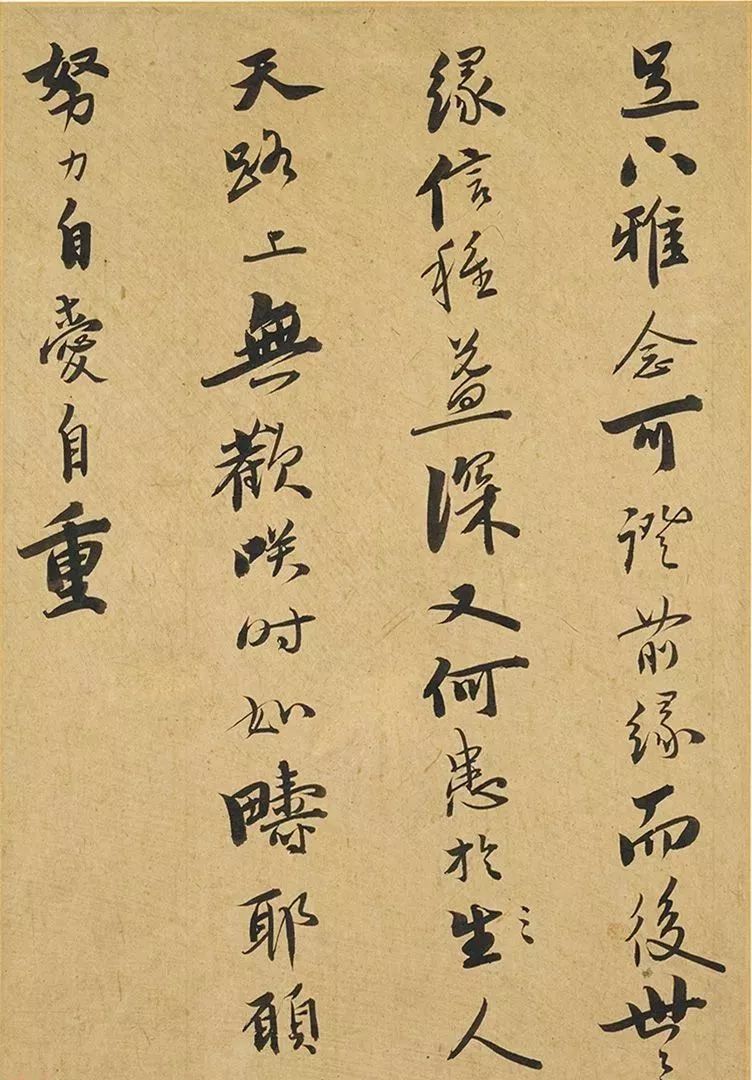 足下雅念可證前緣而後世〻
緣信種益深又何患於生〻人
天路上無歡咲時如疇耶頋
努力自愛自重